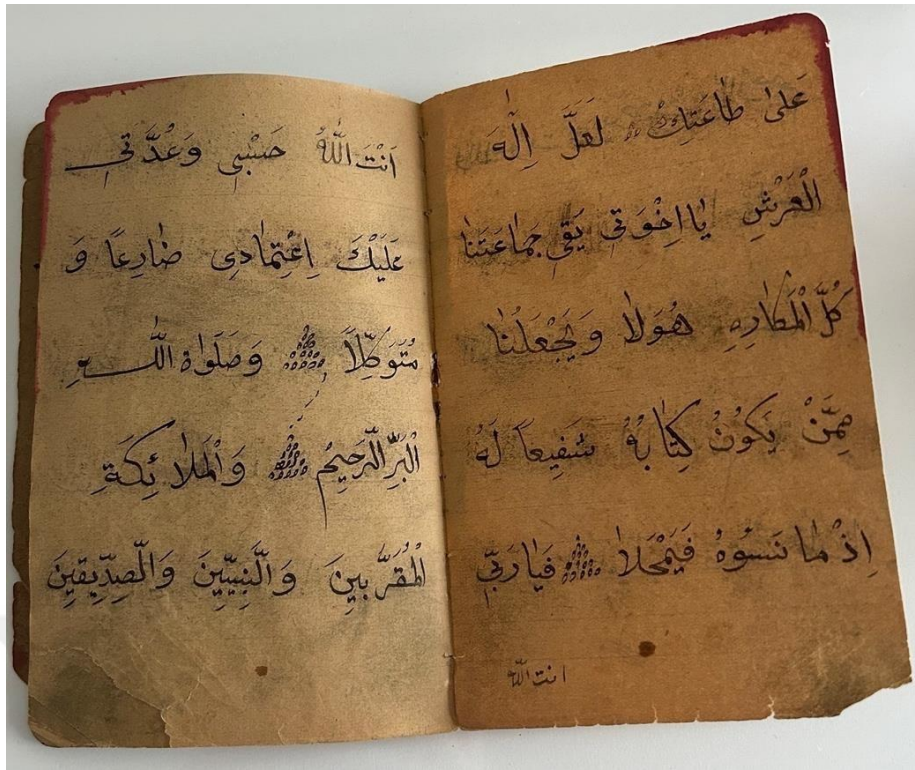 عَلىٰ طاعَتِكُمْ لَعَلَّ اِلٰهَ
الْعَرْشِ يٰا اِخْوَتِي يَقِي جَماعَتَنا
كُلَّ الْمَكارِهِ هُوَلا وَيَجْعَلُنا
مِمَّنْ يَكُونُ كِتابُهُ شَفِيعاً لَهُ
اِذْ مٰا نَسُوهُ فَيَمْحَلا فَيٰارَبِّ
انت الله
اَنْتَ اللّٰهُ حَسْبِي وَعُدَّتِي
عَلَيْكَ اِعْتِمٰادِى ضٰارِعًا وَ
مُتَوَكِّلاً وَصَلَوٰاةُ اللّٰهِ
الْبَرِّ الرَّحِيْمِ وَالْمَلائِكَةِ
الْمُقَرَّبِينَ وَالنَّبِيِّينَ وَالصِّدِّيقِينَ